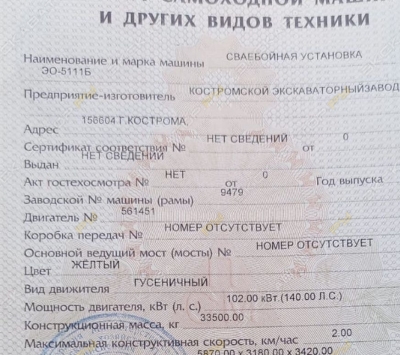 САМОХОДНОЙ МАШИ
И ДРУГИХ ВИДОВ ТЕХНИКИ
Наименование и марка машины СВАЕБОЙНАЯ УСТАНОВКА
ЭО-5111Б
Предприятие-изготовитель КОСТРОМСКОЙ ЭКСКАВАТОРНЫЙЗАВОД
Адрес 156604 Г.КОСТРОМА,
Сертификат соответствия № НЕТ СВЕДЕНИЙ от 0
Выдан НЕТ СВЕДЕНИЙ
Акт гостехосмотра № НЕТ от 0 Год выпуска
Заводской № машины (рамы) 9479
Двигатель № 561451
Коробка передач № НОМЕР ОТСУТСТВУЕТ
Основной ведущий мост (мосты) № НОМЕР ОТСУТСТВУЕТ
Цвет ЖЕЛТЫЙ
Вид движителя ГУСЕНИЧНЫЙ
Мощность двигателя, кВт (л. с.) 102.00 кВт.(140.00 Л.С.)
Конструкционная масса, кг 33500.00
Максимальная конструктивная скорость, км/час 2.00
5870.00 х 3180.00 х 3420.00